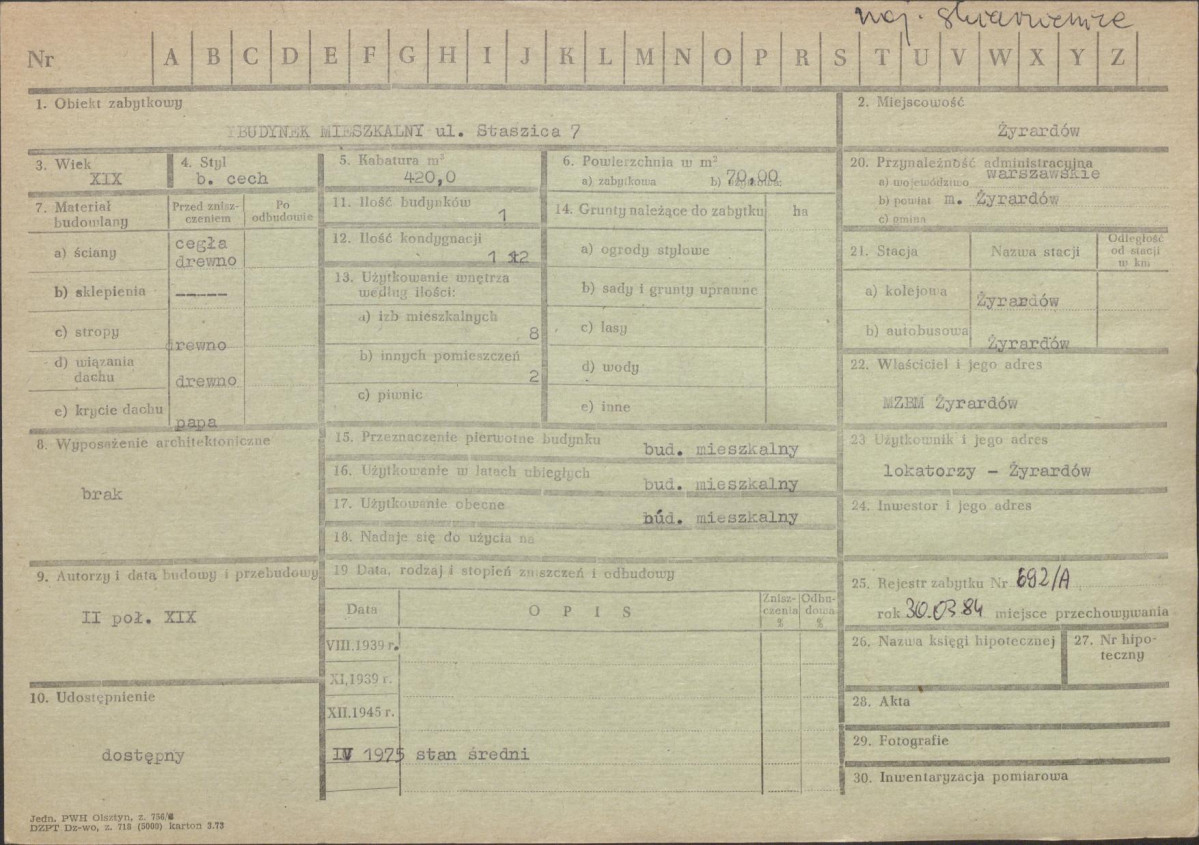 woj. skierniewice
Nr A B C D E F G H I J K L M N O P R S T U V W X Y Z
1. Obiekt zabytkowy
BUDYNEK MIESZKALNY ul. Staszica 7
2. Miejscowość
Żyrardów
3. Wiek
XIX
4. Styl
b. cech
5. Kabatura m²
420,0
6. Powierzchnia w m²
a) zabytkowa b) użytkowa
70,00
20. Przynależność administracyjna
a) województwo warszawskie
b) powiat m. Żyrardów
c) gmina
7. Materiał budowlany
Przed zniszczeniem
Po odbudowie
a) ściany cegła
drewno
b) sklepienia -----
c) stropy drewno
d) wiązania dachu drewno
e) krycie dachu papa
11. Ilość budynków
1
12. Ilość kondygnacji
1 12
13. Użytkowanie wnętrza
według ilości:
a) izb mieszkalnych
8
b) innych pomieszczeń
2
c) piwnic
14. Grunty należące do zabytku ha
a) ogrody stylowe
b) sady i grunty uprawne
c) lasy
d) wody
e) inne
21. Stacja Nazwa stacji Odległość od stacji w km
a) kolejowa Żyrardów
b) autobusowa Żyrardów
22. Właściciel i jego adres
MZBM Żyrardów
8. Wyposażenie architektoniczne
brak
15. Przeznaczenie pierwotne budynku
bud. mieszkalny
16. Użytkowanie w latach ubiegłych
bud. mieszkalny
17. Użytkowanie obecne
bud. mieszkalny
18. Nadaje się do użycia na
23 Użytkownik i jego adres
lokatorzy - Żyrardów
24. Inwestor i jego adres
9. Autorzy i data budowy i przebudowy
II poł. XIX
19 Data, rodzaj i stopień zniszczeń i odbudowy
Data O P I S Zniszczenia % Odbudowa %
VIII.1939 r.
XI,1939 r.
XII.1945 r.
IV 1975 stan średni
25. Rejestr zabytku Nr 692/A
rok 30.03.84 miejsce przechowywania
26. Nazwa księgi hipotecznej
27. Nr hipoteczny
28. Akta
29. Fotografie
30. Inwentaryzacja pomiarowa
10. Udostępnienie
dostępny
Jedn. PWH Olsztyn, z. 756/
DZPT Dz-wo, z. 718 (5000) karton 3.73